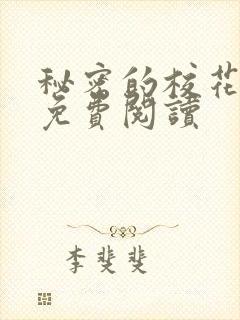 秘密的校花
免費閱讀
李斐斐